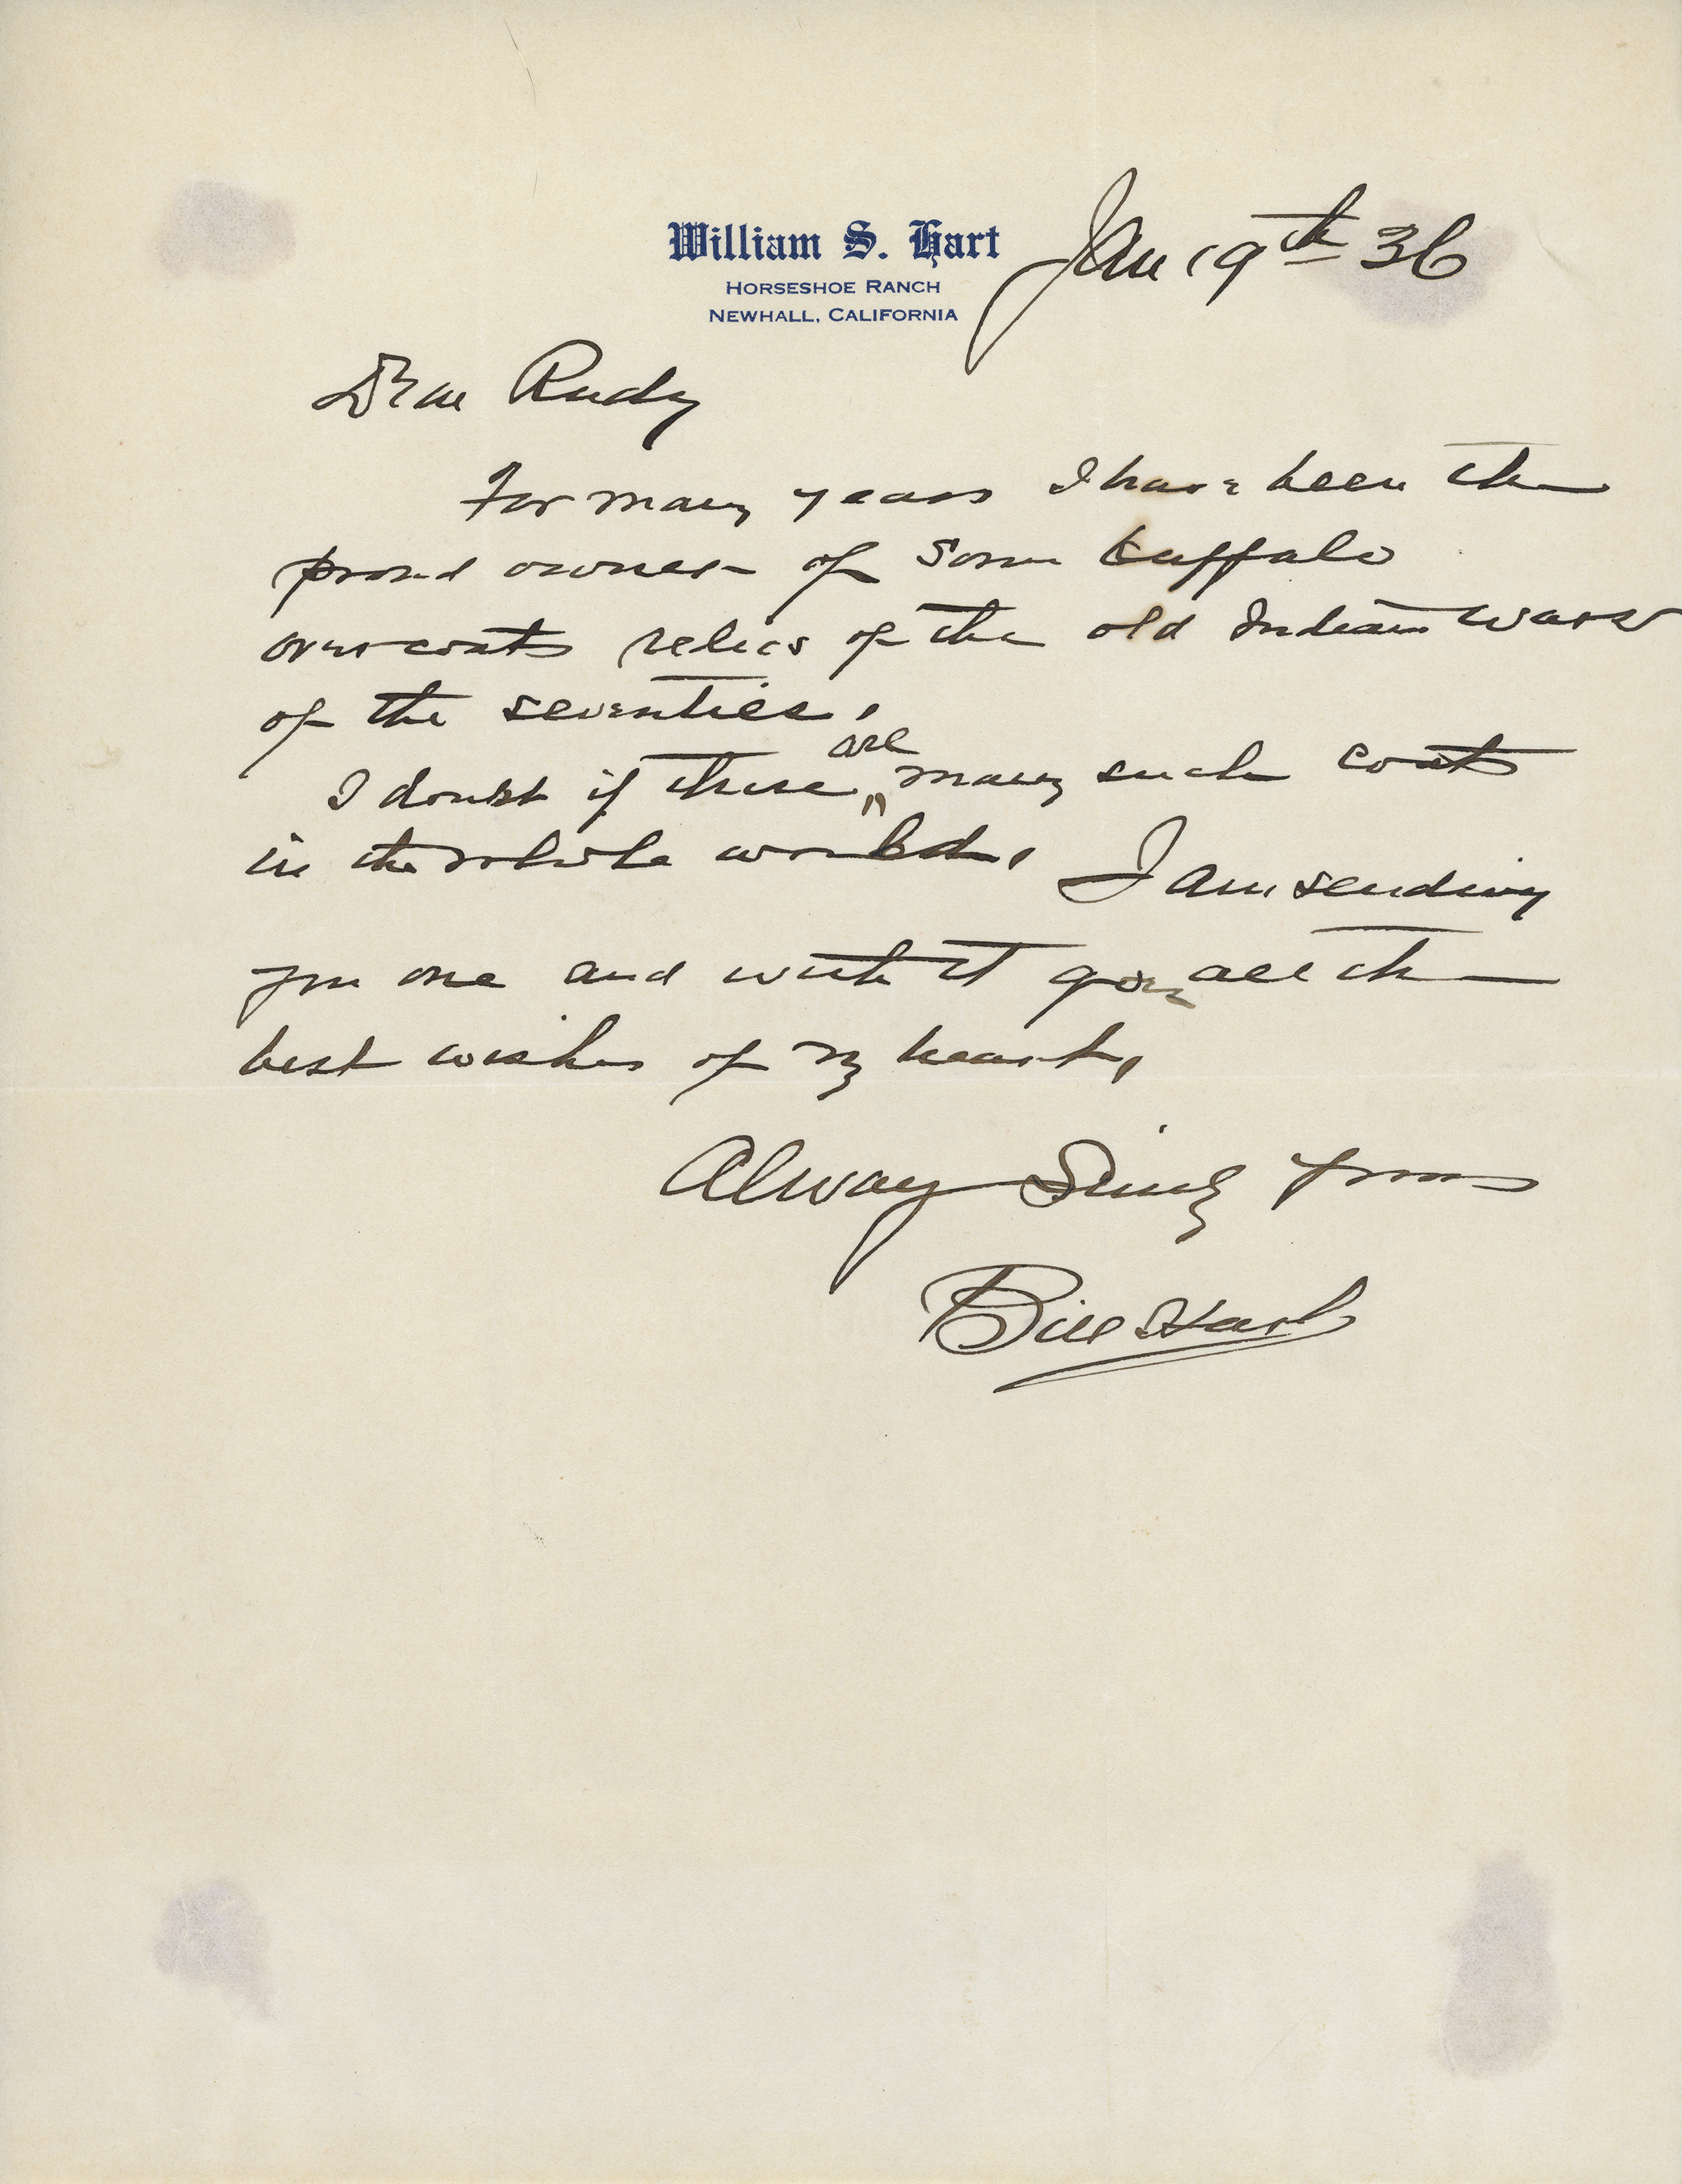 William S. Hart
HORSESHOE RANCH
NEWHALL, CALIFORNIA
Jan 19th 36
Dear Rudy
For many years I have been the
proud owner of some buffalo
overcoats relics of the old Indian wars
of the seventies.
are
I doubt if there many such coats
in the whole world. I am sending
you one and with it goes all the
best wishes of my heart,
Always Sincerely Yours
Bill Hart